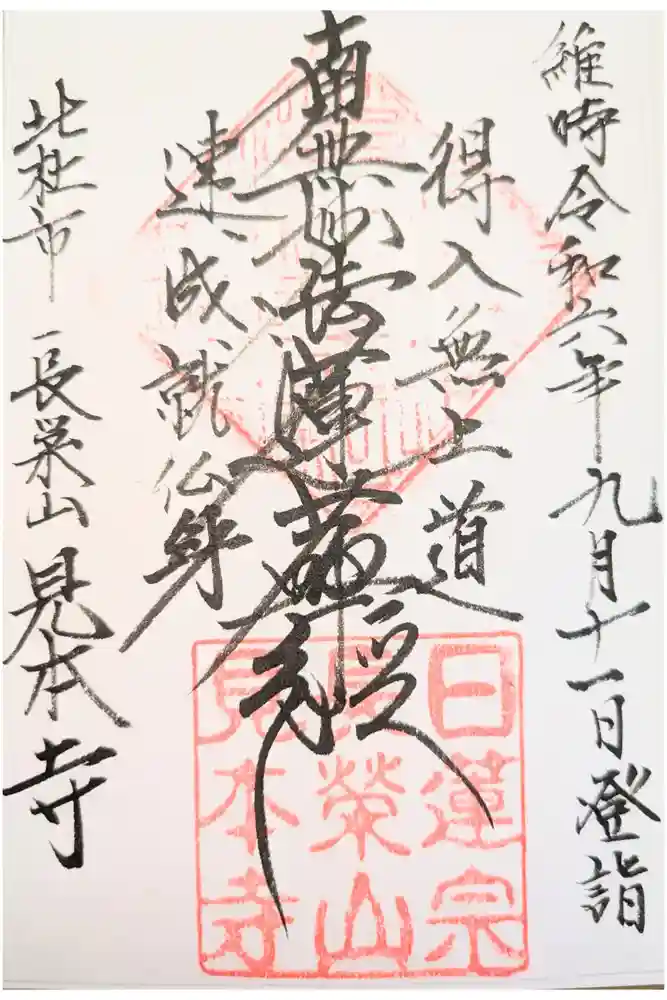 維時令和六年九月十一日登詣
得入無上道
南無妙法蓮華経
速成就仏身
北杜市 長栄山 見本寺
日蓮宗
長榮山
見本寺